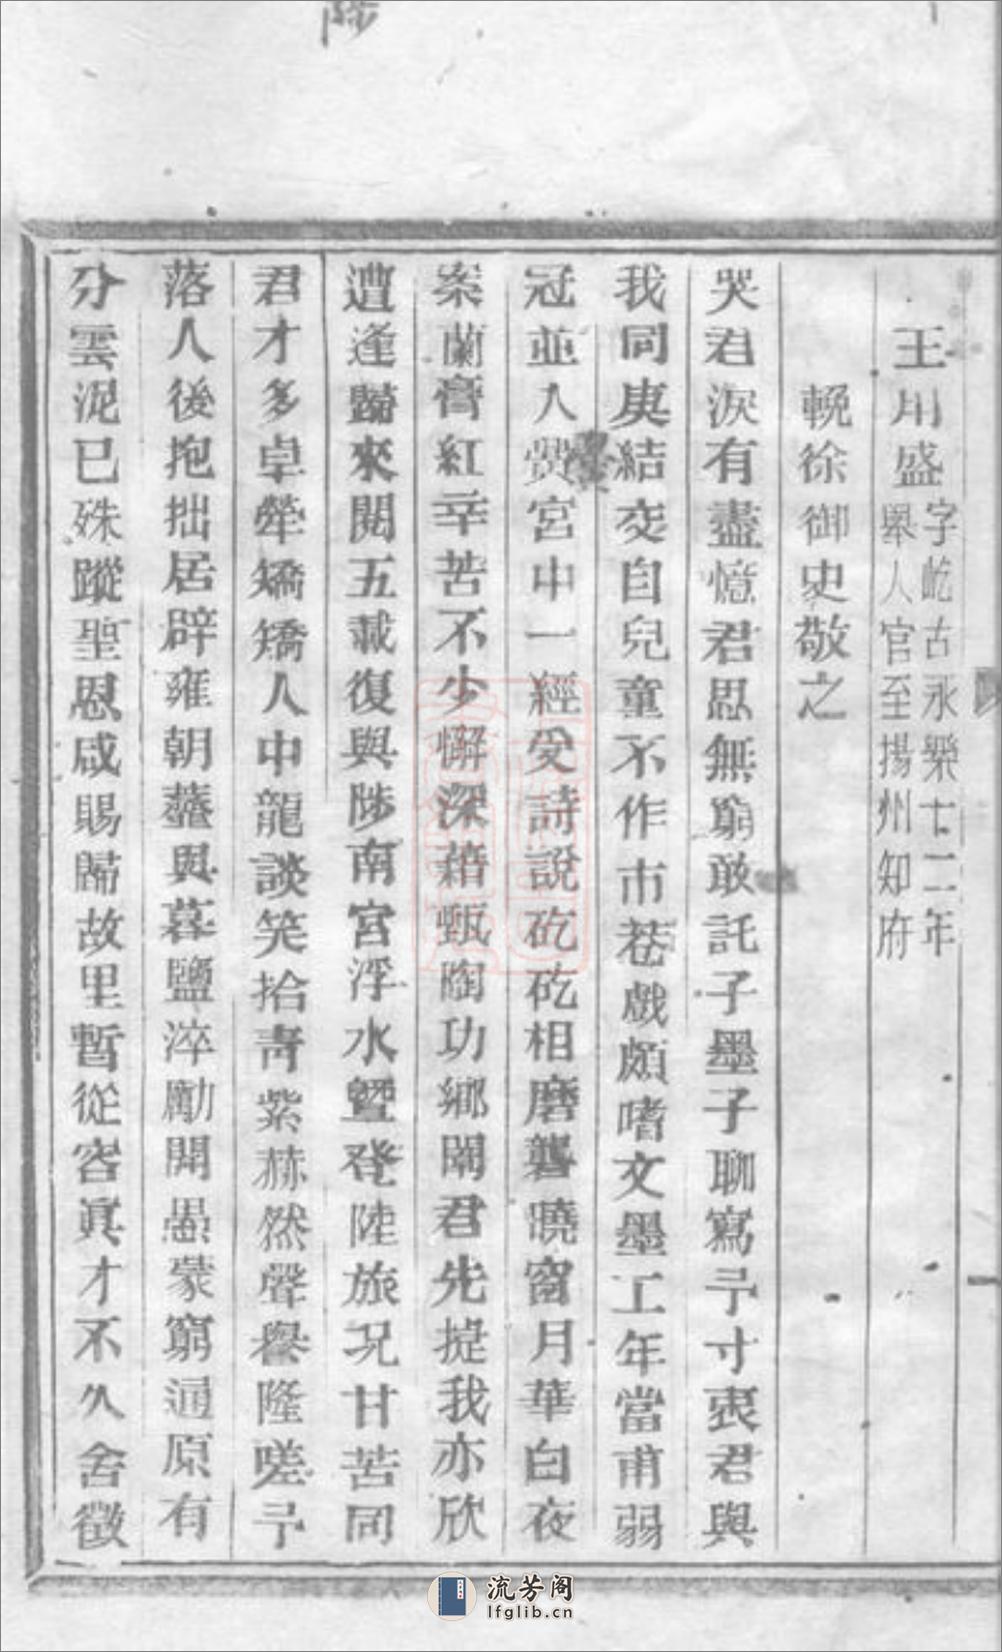 王用盛字屹古永樂十二年
舉人官至揚州知府
輓徐御史敬之
哭君淚有盡憶君思無窮敢託子墨子聊寫予寸衷君與
我同庚結交自兒童不作市巷戲頗嗜文墨工年當甫弱
冠並入黌宮中一經受詩說矻矻相磨礱曉窗月華白夜
案蘭膏紅辛苦不少懈深藉甄陶功鄉闈君先捷我亦欣
遭逢歸來閱五載復與陟南宮浮水暨登陸旅况甘苦同
君才多卓犖矯矯人中龍談笑拾青紫赫然聲譽隆嗟予
落人後抱拙居辟雍朝虀與暮鹽淬勵開愚蒙窮通原有
分雲泥已殊蹤聖恩咸賜歸故里暫從容眞才不久舍徵
流芳阁
lfglib.cn